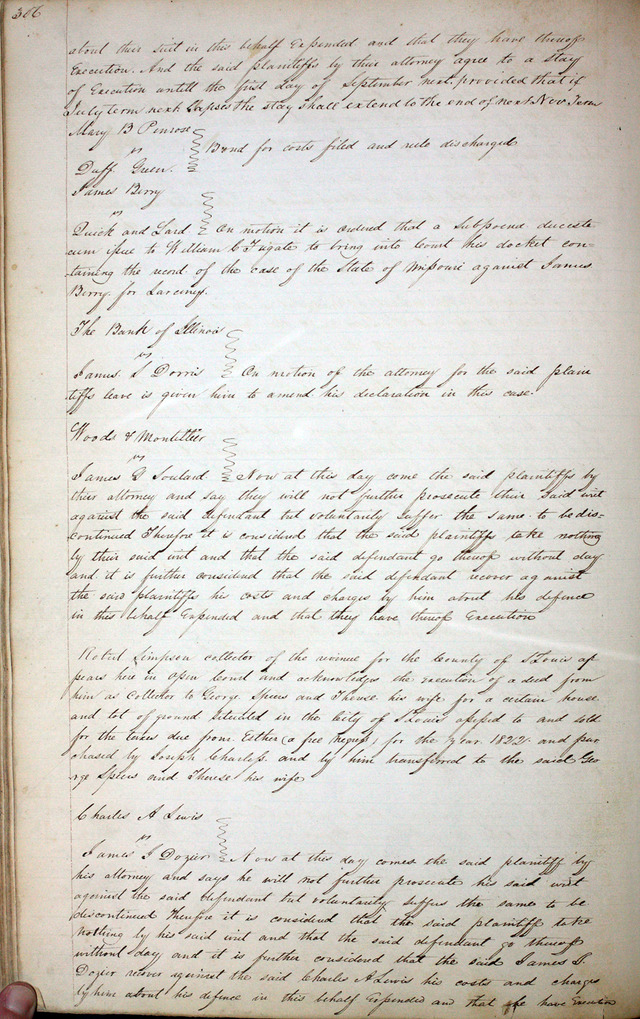 306
about their suit in this behalf Expended and that they have thereof
Execution. And the said plaintiffs by their attorney agree to a Stay
of Execution untill the first day of September next. provided that if
July term next Lapses the stay shall extend to the end of next Nov Term
Mary B Penrose
vs
Bond for costs filed and rule discharged
Duff Green.
James Berry
vs
Quick and Lard On motion it is ordered that a Subpoena duceste
cum issue to William C Fugate to bring into Court his docket con-
taining the record of the case of the State of Missouri against James
Berry for Larceny.
The Bank of Illinois
vs
James L Dorris On motion of the attorney for the said plain
tiffs leave is given him to amend his declaration in this case.
Woods &
vs
James G Soulard Now at this day come the said plaintiffs by
their attorney and say they will not further prosecute their said writ
against the said defendant but voluntarily suffer the same to be dis-
continued Therefore it is considered that the said plaintiffs take nothing
by their said writ and that the said defendant go thereof without day
and it is further considered that the said defendant recover against
the said plaintiffs his costs and charges by him about his defence
in this behalf Expended and that they have thereof Execution
Robert Simpson collector of the revenue for the County of St Louis ap
pears here in open Court and acknowledges the execution of a deed from
him as collector to George Speers and Therese his wife for a certain house
and lot of ground situated in the City of St Louis assessed to and sold
for the taxes due from Esther (a free Negress) for the year 1822 and pur
chased by Joseph Charless. and by him transferred to the said Geo
rge Speers and Therese his wife
Charles A Lewis
vs
James S Dozier Now at this day comes the said plaintiff by
his attorney and says he will not further prosecute his said writ
against the said defendant but voluntarily suffers the same to be
discontinued Therefore it is considered that the said plaintiff take
nothing by his said writ and that the said defendant go thereof
without day and it is further considered that the said James S.
Dozier recover against the said Charles A Lewis his costs and charges
by him about his defence in this behalf Expended and that he have Execution